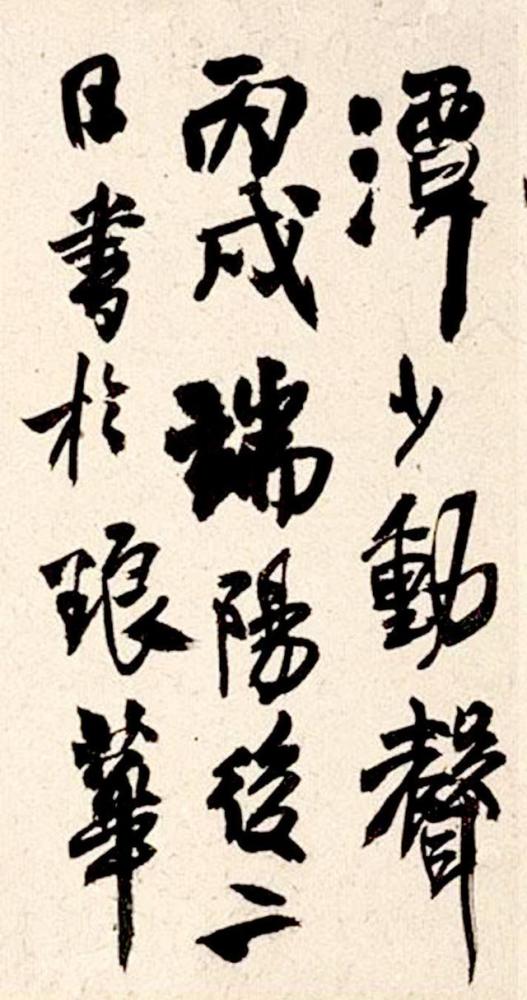 潭少動聲
丙戌瑞陽後二
日書於琅華